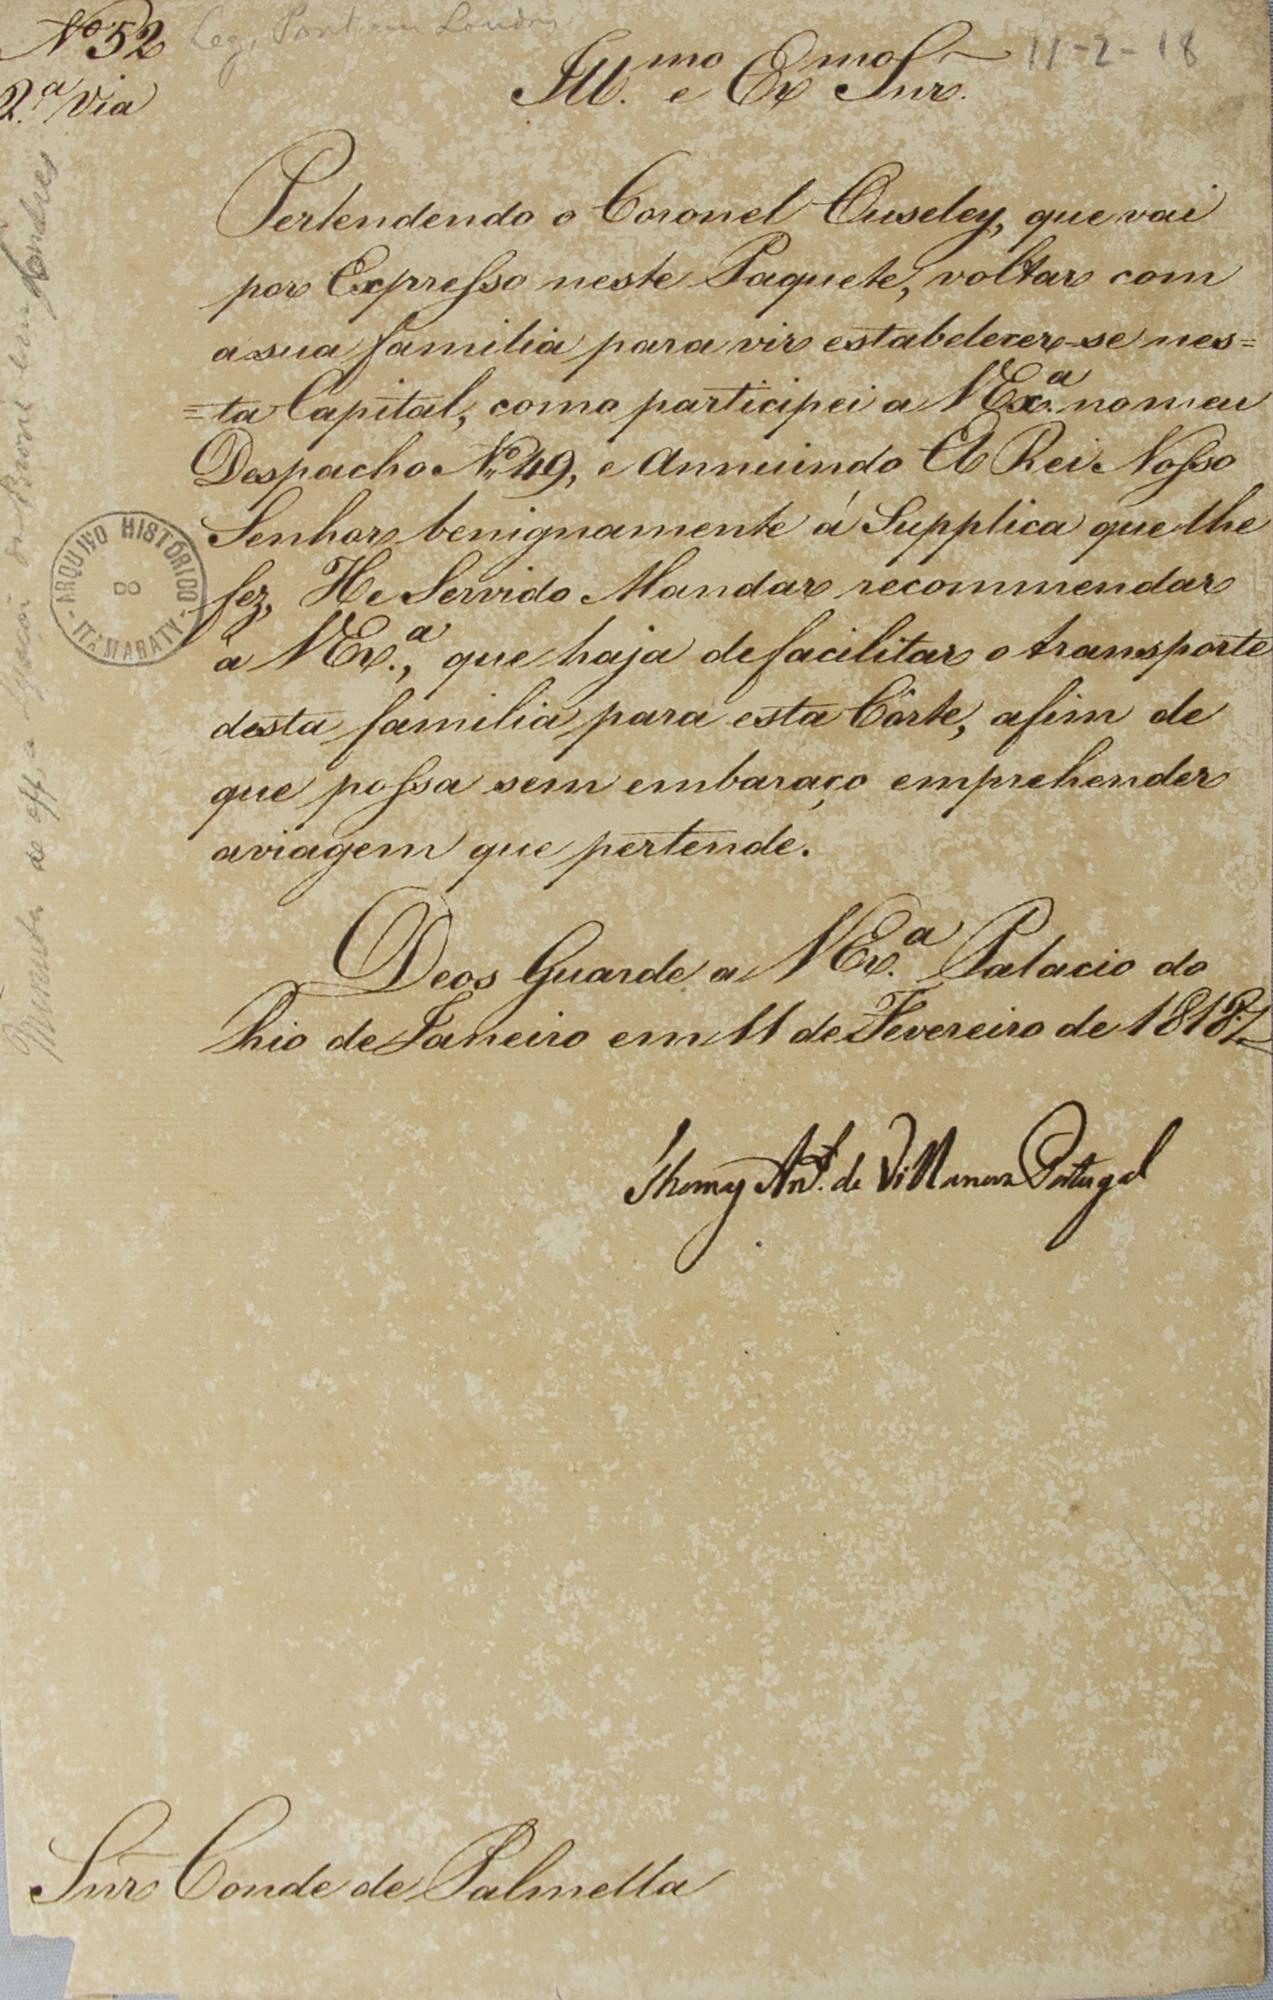 Nº 52
2.ª Via
11-2-18
Ill.mo e Ex.mo Snr.
Pertendendo o Coronel Ouseley, que vai
por Expresso neste Paquete, voltar com
a sua familia para vir estabelecer-se nes=
=ta Capital, como participei a VEx.ª no meu
Despacho Nº 49, e Annuindo El Rei Nosso
Senhor benignamente á Supplica que lhe
fez, He Servido Mandar recommendar
a VEx.ª, que haja de facilitar o transporte
desta familia para esta Côrte, afim de
que possa sem embaraço emprehender
a viagem que pertende.
Deos Guarde a VEx.ª Palacio do
Rio de Janeiro em 11 de Fevereiro de 1818
Thomaz Ant.º de Villanova Portugal
Snr Conde de Palmella
ARQUIVO HISTORICO
DO
ITAMARATY
Minuta de off. a Legação do Brasil em Londres